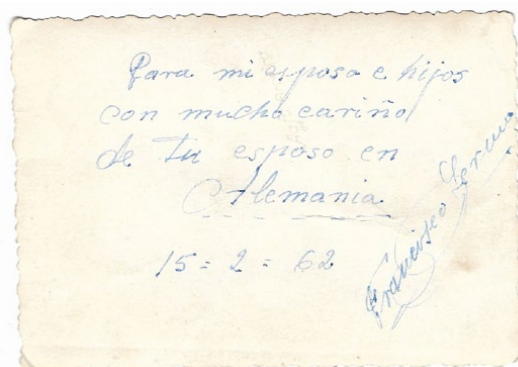 Para mi esposa e hijos
con mucho cariño
de tu esposo en
Alemania
15 = 2 = 62
Francisco